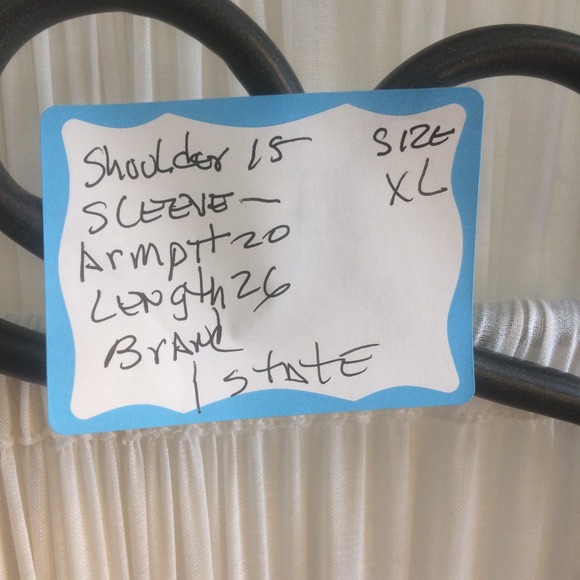 Shoulder 15
SIZE
SLEEVE —
XL
Armpit 20
LENgth 26
BrANd
1 StAtE